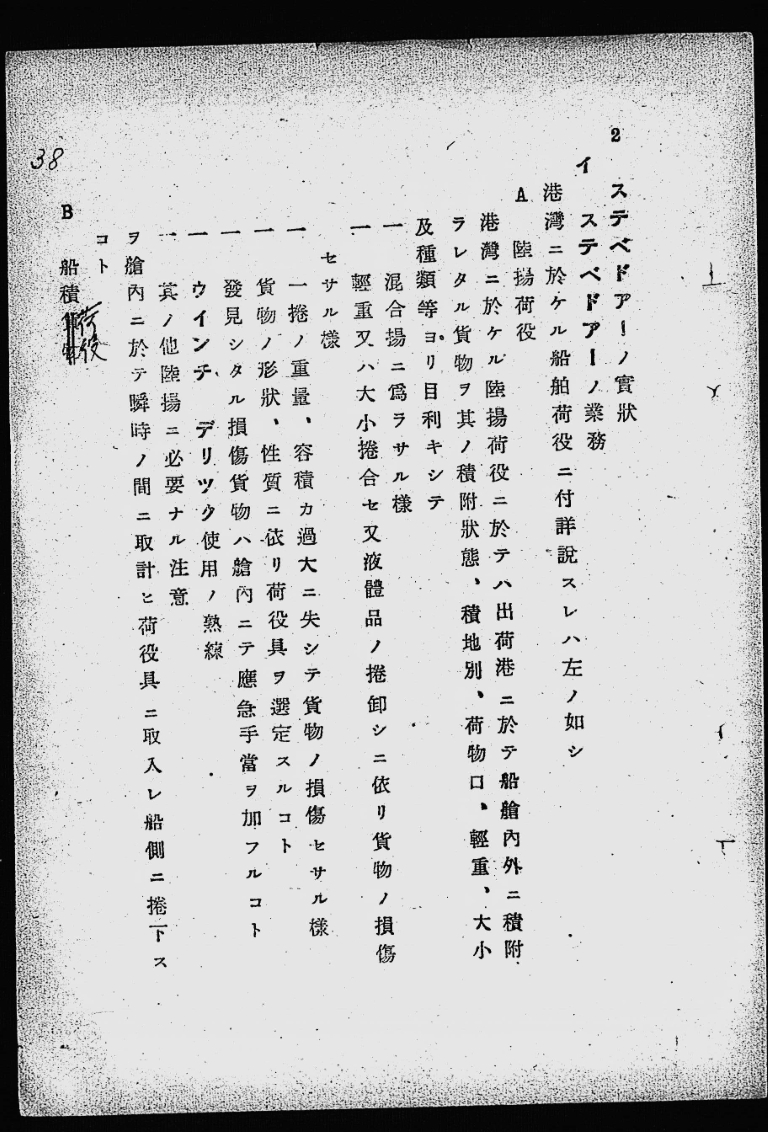 2 ステベドアーノ實狀
イ ステベドアーノ業務
港灣ニ於ケル船舶荷役ニ付詳説スレハ左ノ如シ
A 陸揚荷役
港灣ニ於ケル陸揚荷役ニ於テハ出荷港ニ於テ船艙內外ニ積附
ラレタル貨物ヲ其ノ積附狀態、積地別、荷物口、輕重、大小
及種類等ヨリ目利キシテ
一 混合揚ニ爲ラサル樣
一 輕重又ハ大小捲合セ又液體品ノ捲卸シニ依リ貨物ノ損傷
セサル樣
一 一捲ノ重量、容積カ過大ニ失シテ貨物ノ損傷セサル樣
一 貨物ノ形狀、性質ニ依リ荷役具ヲ選定スルコト
一 發見シタル損傷貨物ハ艙內ニテ應急手當ヲ加フルコト
一 ウインチ デリツク使用ノ熟練
一 其ノ他陸揚ニ必要ナル注意
ヲ艙內ニ於テ瞬時ノ間ニ取計ヒ荷役具ニ取入レ船側ニ捲下ス
コト
B 船積荷役
38